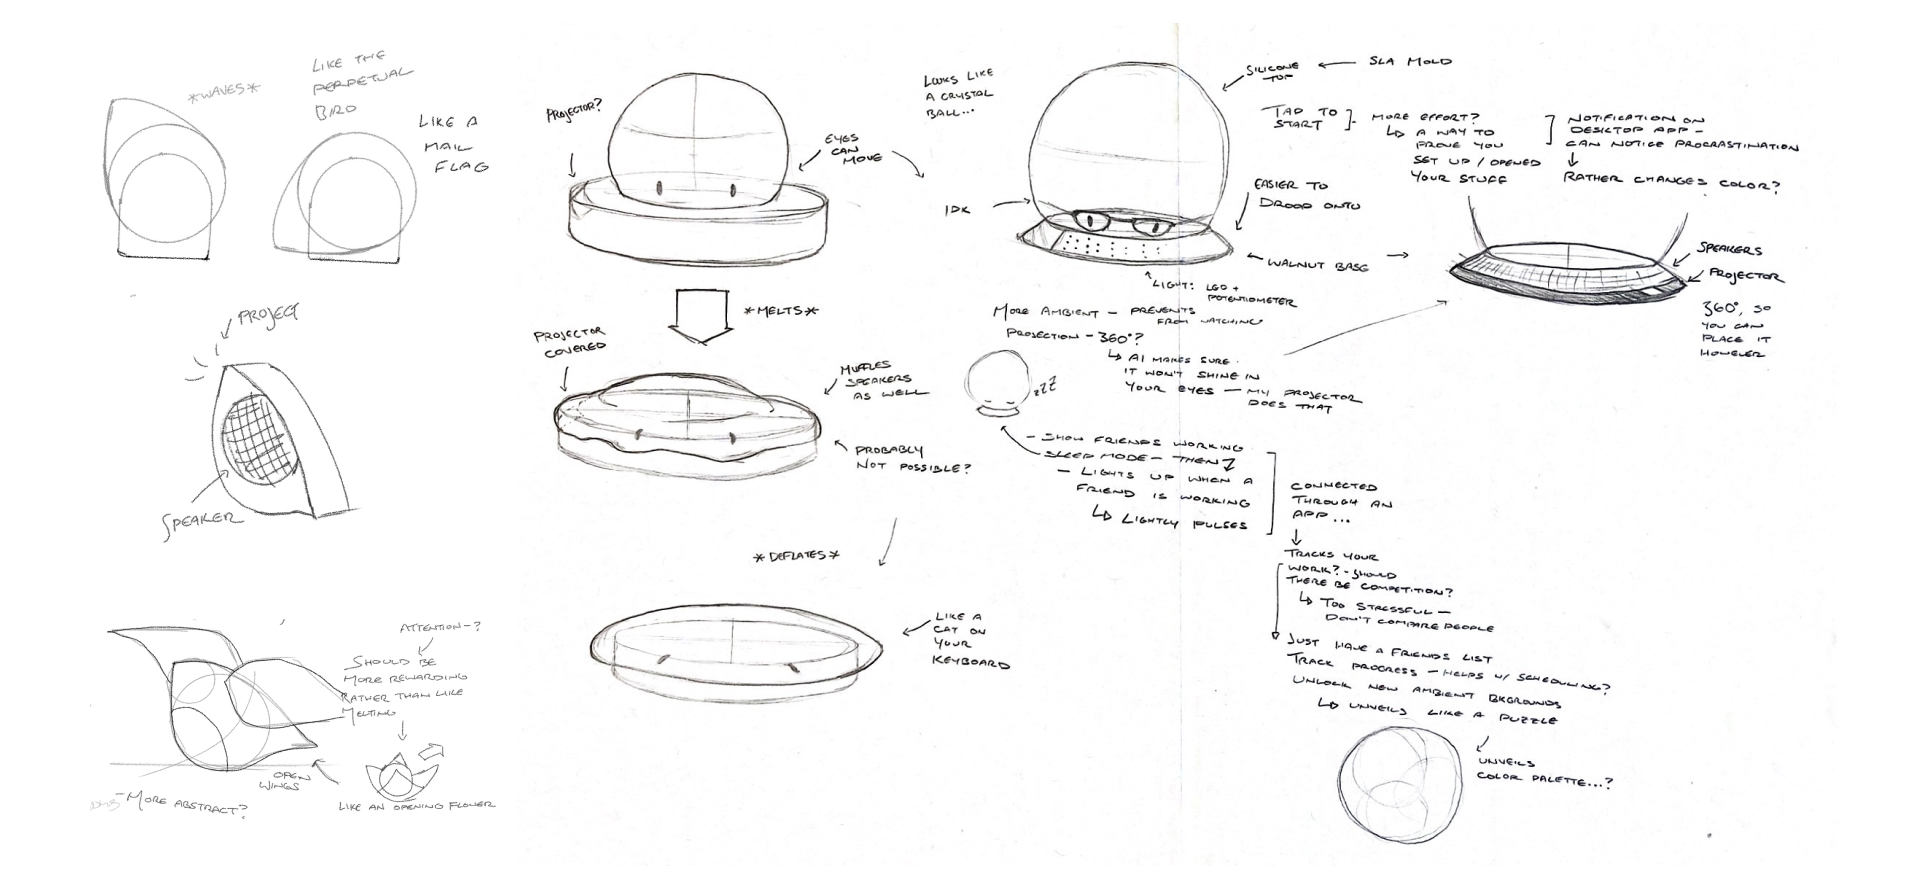 *WAVES*
LIKE THE
PERPETUAL
BIRD
LIKE A
MAIL
FLAG
PROJECT
SPEAKER
ATTENTION-?
SHOULD BE
MORE REWARDING
RATHER THAN LIKE
MELTING
OPEN
WINGS
LIKE AN OPENING FLOWER
-MORE ABSTRACT?
PROJECTOR?
EYES
CAN
MOVE
*MELTS*
PROJECTOR
COVERED
MUFFLES
SPEAKERS
AS WELL
PROBABLY
NOT POSSIBLE?
*DEFLATES*
LIKE A
CAT ON
YOUR
KEYBOARD
LOOKS LIKE
A CRYSTAL
BALL...
IDK
SILICONE
TOP
SLA MOLD
TAP TO
START
MORE EFFORT?
A WAY TO
PROVE YOU
SET UP / OPENED
YOUR STUFF
NOTIFICATION ON
DESKTOP APP -
CAN NOTICE PROCRASTINATION
RATHER CHANGES COLOR?
EASIER TO
DROOP ONTO
WALNUT BASE
LIGHT: LED +
POTENTIOMETER
SPEAKERS
PROJECTOR
360°, SO
YOU CAN
PLACE IT
HOWEVER
MORE AMBIENT - PREVENTS
FROM WATCHING
PROJECTION - 360°?
AI MAKES SURE
IT WON'T SHINE IN
YOUR EYES - MY PROJECTOR
DOES THAT
zzZ
- SHOW FRIENDS WORKING
- SLEEP MODE - THEN
- LIGHTS UP WHEN A
FRIEND IS WORKING
LIGHTLY PULSES
CONNECTED
THROUGH AN
APP...
TRACKS YOUR
WORK? - SHOULD
THERE BE COMPETITION?
TOO STRESSFUL -
DON'T COMPARE PEOPLE
JUST HAVE A FRIENDS LIST
TRACK PROGRESS - HELPS W/ SCHEDULING?
UNLOCK NEW AMBIENT BKGROUNDS
UNVEILS LIKE A PUZZLE
UNVEILS
COLOR PALETTE...?